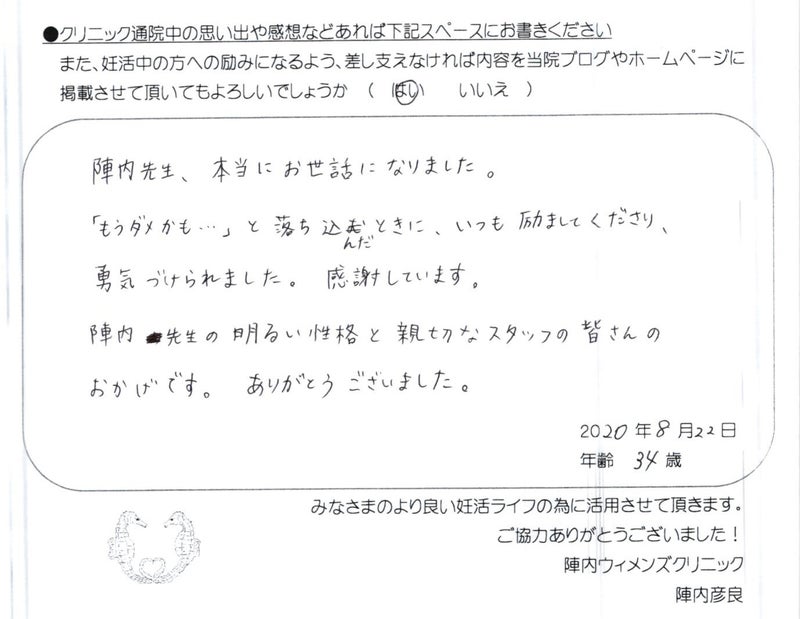 ●クリニック通院中の思い出や感想などあれば下記スペースにお書きください
また、妊活中の方への励みになるよう、差し支えなければ内容を当院ブログやホームページに
掲載させて頂いてもよろしいでしょうか （ はい いいえ ）
陣内先生、本当にお世話になりました。
「もうダメかも…」と落ち込んだときに、いつも励ましてくださり、
勇気づけられました。感謝しています。
陣内先生の明るい性格と親切なスタッフの皆さんの
おかげです。ありがとうございました。
2020年8月22日
年齢 34歳
みなさまのより良い妊活ライフの為に活用させて頂きます。
ご協力ありがとうございました！
陣内ウィメンズクリニック
陣内彦良